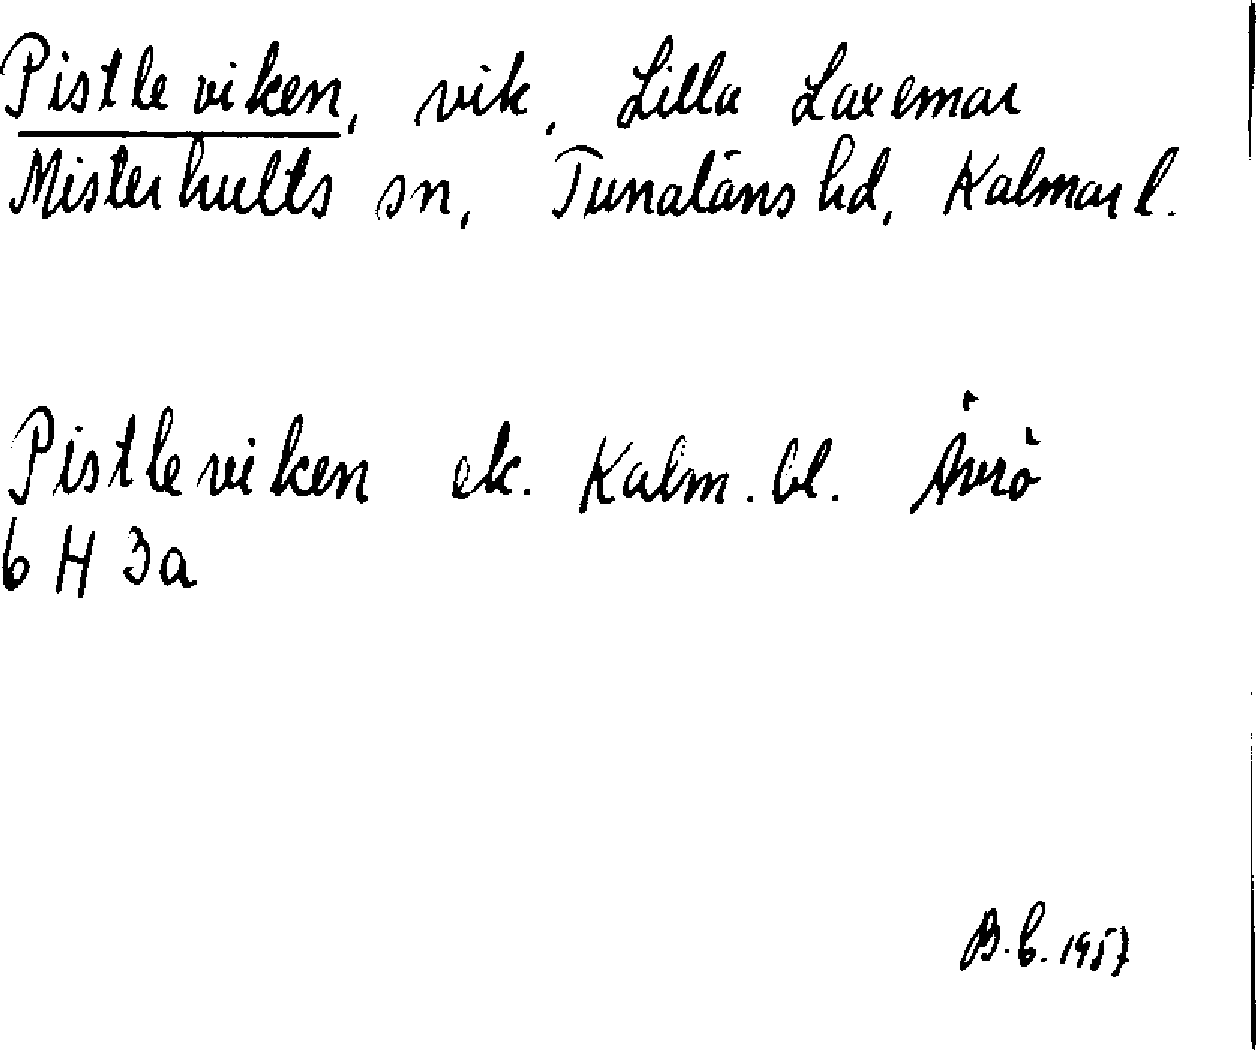 Pistleviken, vik, Lilla Laxemar
Misterhults sn, Tunaläns hd, Kalmar l.
Pistleviken ek. Kalm. bl. Ävrö
6 H 3a
B.C. 1957